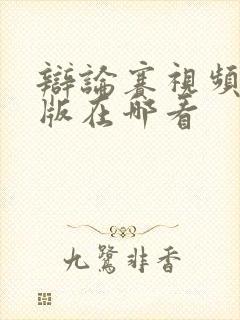 辯論賽視頻
版在哪看
九鷺非香